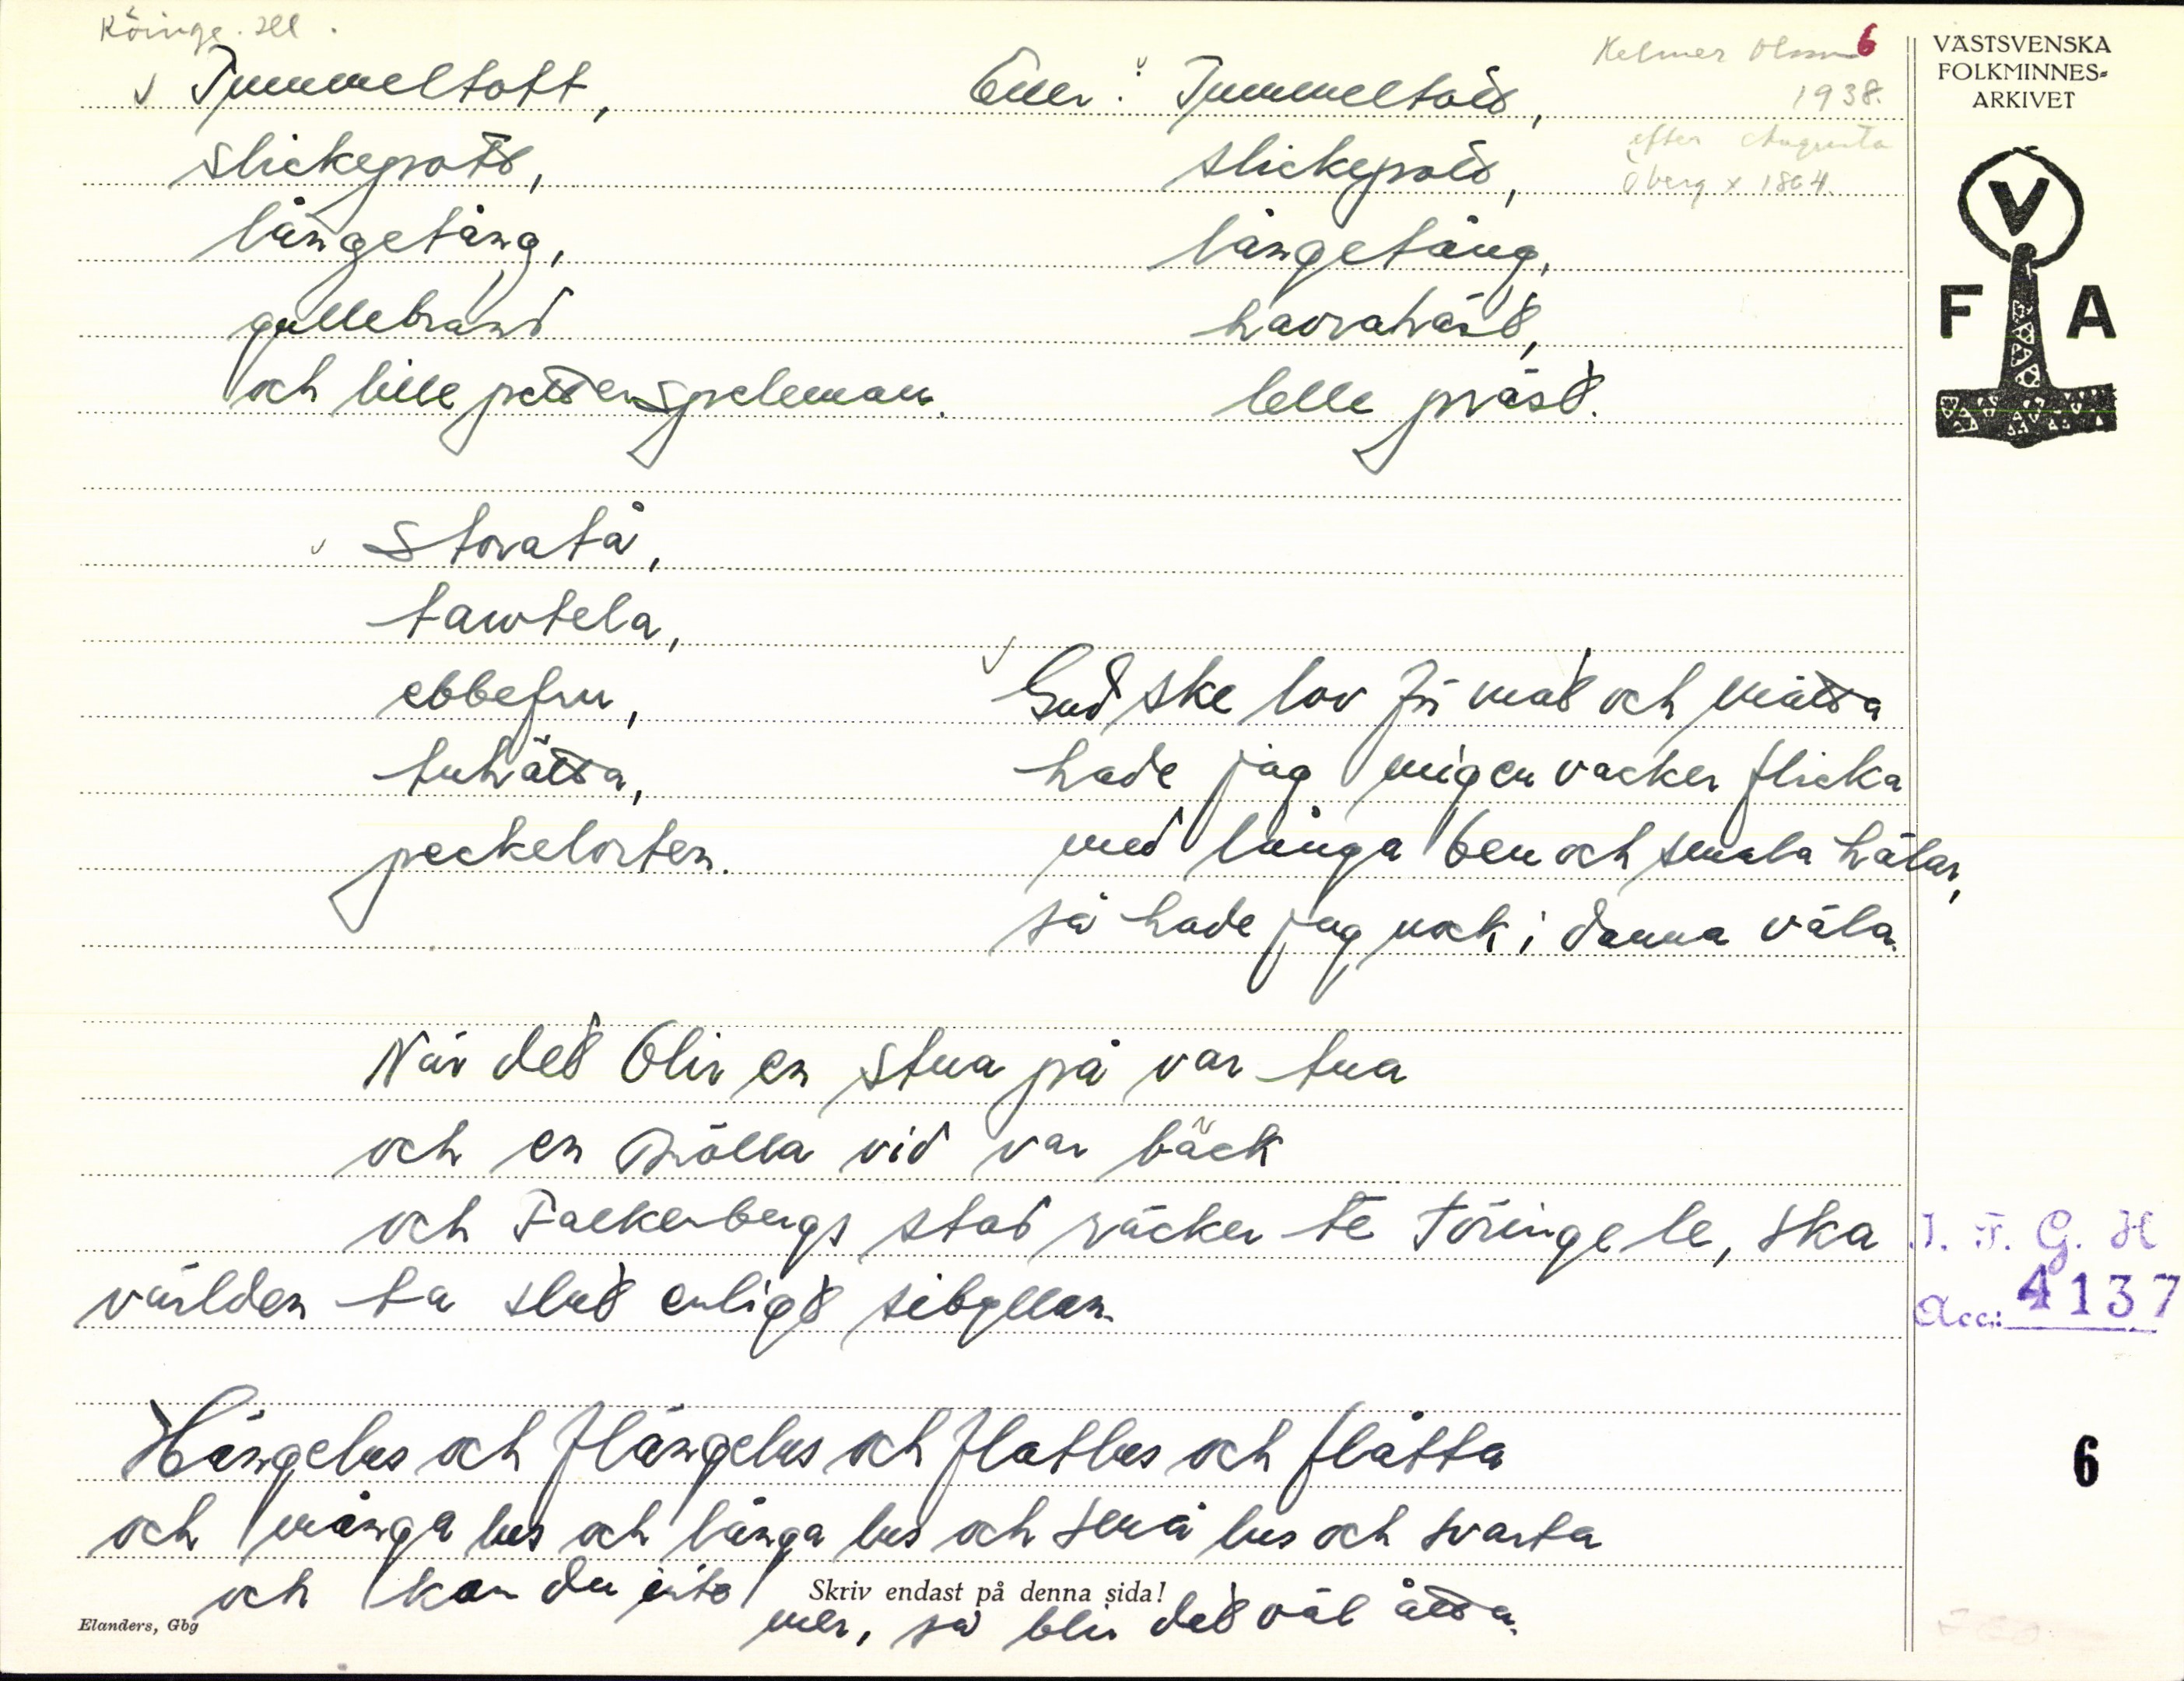 Köinge. Hll.
Tummeltott,
slickepott,
långetång,
gullebrand
och lille petter speleman.
Eller: Tummeltott,
slickepott,
långetång,
havrahäst,
lelle präst.
Helmer Olsson 6
1938.
efter Augusta
Öberg x 1864.
VÄSTSVENSKA
FOLKMINNES-
ARKIVET
V
F A
Storatå,
tawtela,
ebbefru,
tuhätta,
peckelorten.
Gud ske lov för mat och mätta
hade jag mig en vacker flicka
med långa ben och smala hälar,
så hade jag nock i denna väla.
När det blir en stua på var tua
och en mölla vid var bäck
och Falkenbergs stad räcker te Töringe le, ska
världen ta slut enligt sibyllan.
I. F. G. H
Acc.: 4137
Hängelus och flängelus och flatlus och flätta
och många lus och långa lus och små lus och svarta
och kan du inte mer, så blir det väl åtta.
6
Skriv endast på denna sida!
Elanders, Gbg